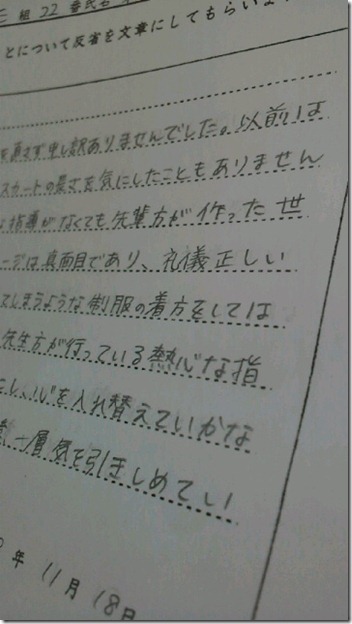 組 22 番氏名
とについて反省を文章にしてもらいま
直さず申し訳ありませんでした。以前は
スカートの長さを気にしたこともありません
指導がなくても先輩方が作った世
ージは真面目であり、礼儀正しい
てしまうような制服の着方をしては
先生方が行っている熱心な指
し、心を入れ替えていかな
一層気を引きしめてい
年 11月 18日